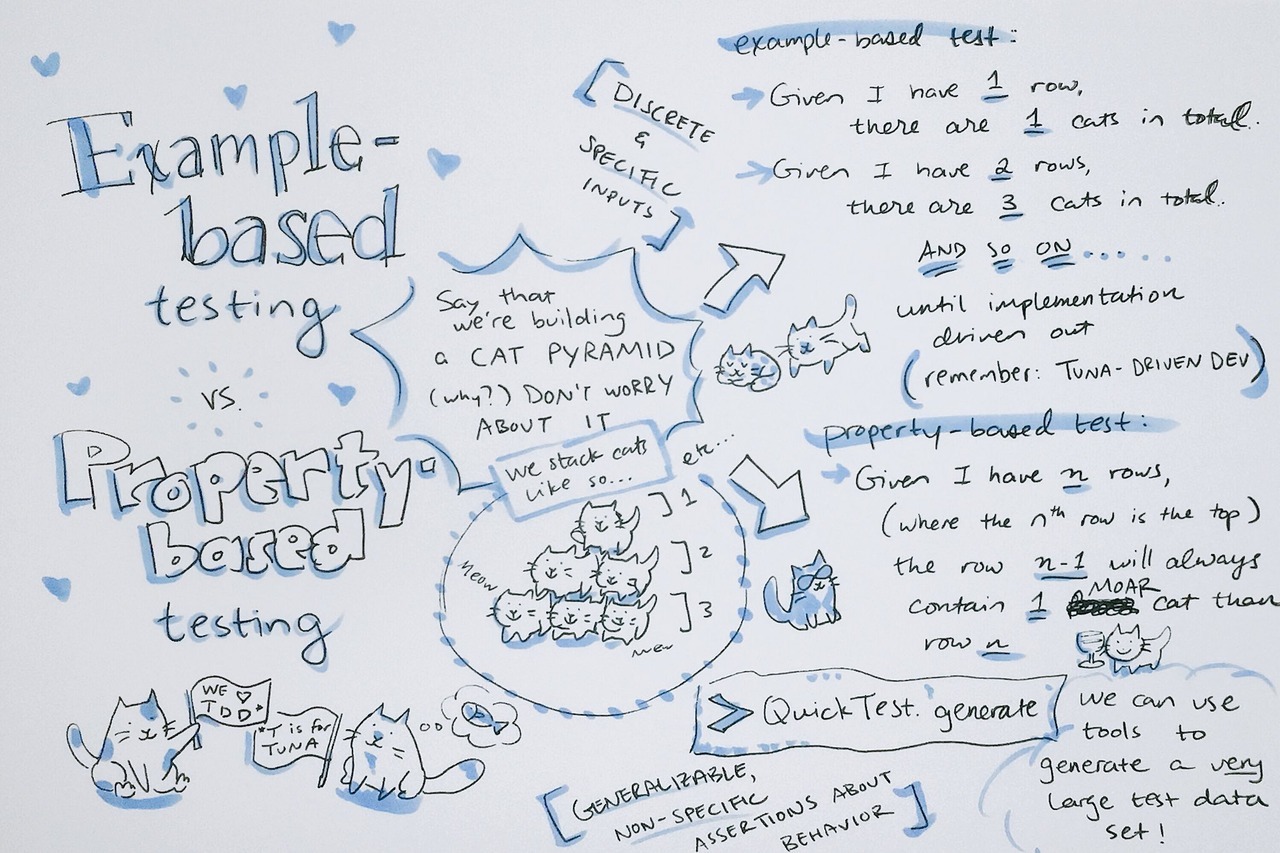 Example-
based
testing
vs.
Property-
based
testing
WE ♡
TDD*
*T is for
TUNA
Say that
we're building
a CAT PYRAMID
(why?) DON'T WORRY
ABOUT IT
we stack cats
like so...
etc...
] 1
] 2
] 3
meow
mew
[DISCRETE
&
SPECIFIC
INPUTS]
example-based test:
→ Given I have 1 row,
there are 1 cats in total.
→ Given I have 2 rows,
there are 3 cats in total.
AND SO ON......
until implementation
driven out
(remember: TUNA-DRIVEN DEV)
property-based test:
→ Given I have n rows,
(where the nth row is the top)
the row n-1 will always
contain 1 MOAR cat than
row n
> QuickTest.generate
we can use
tools to
generate a very
large test data
set!
[GENERALIZABLE,
NON-SPECIFIC
ASSERTIONS ABOUT
BEHAVIOR]